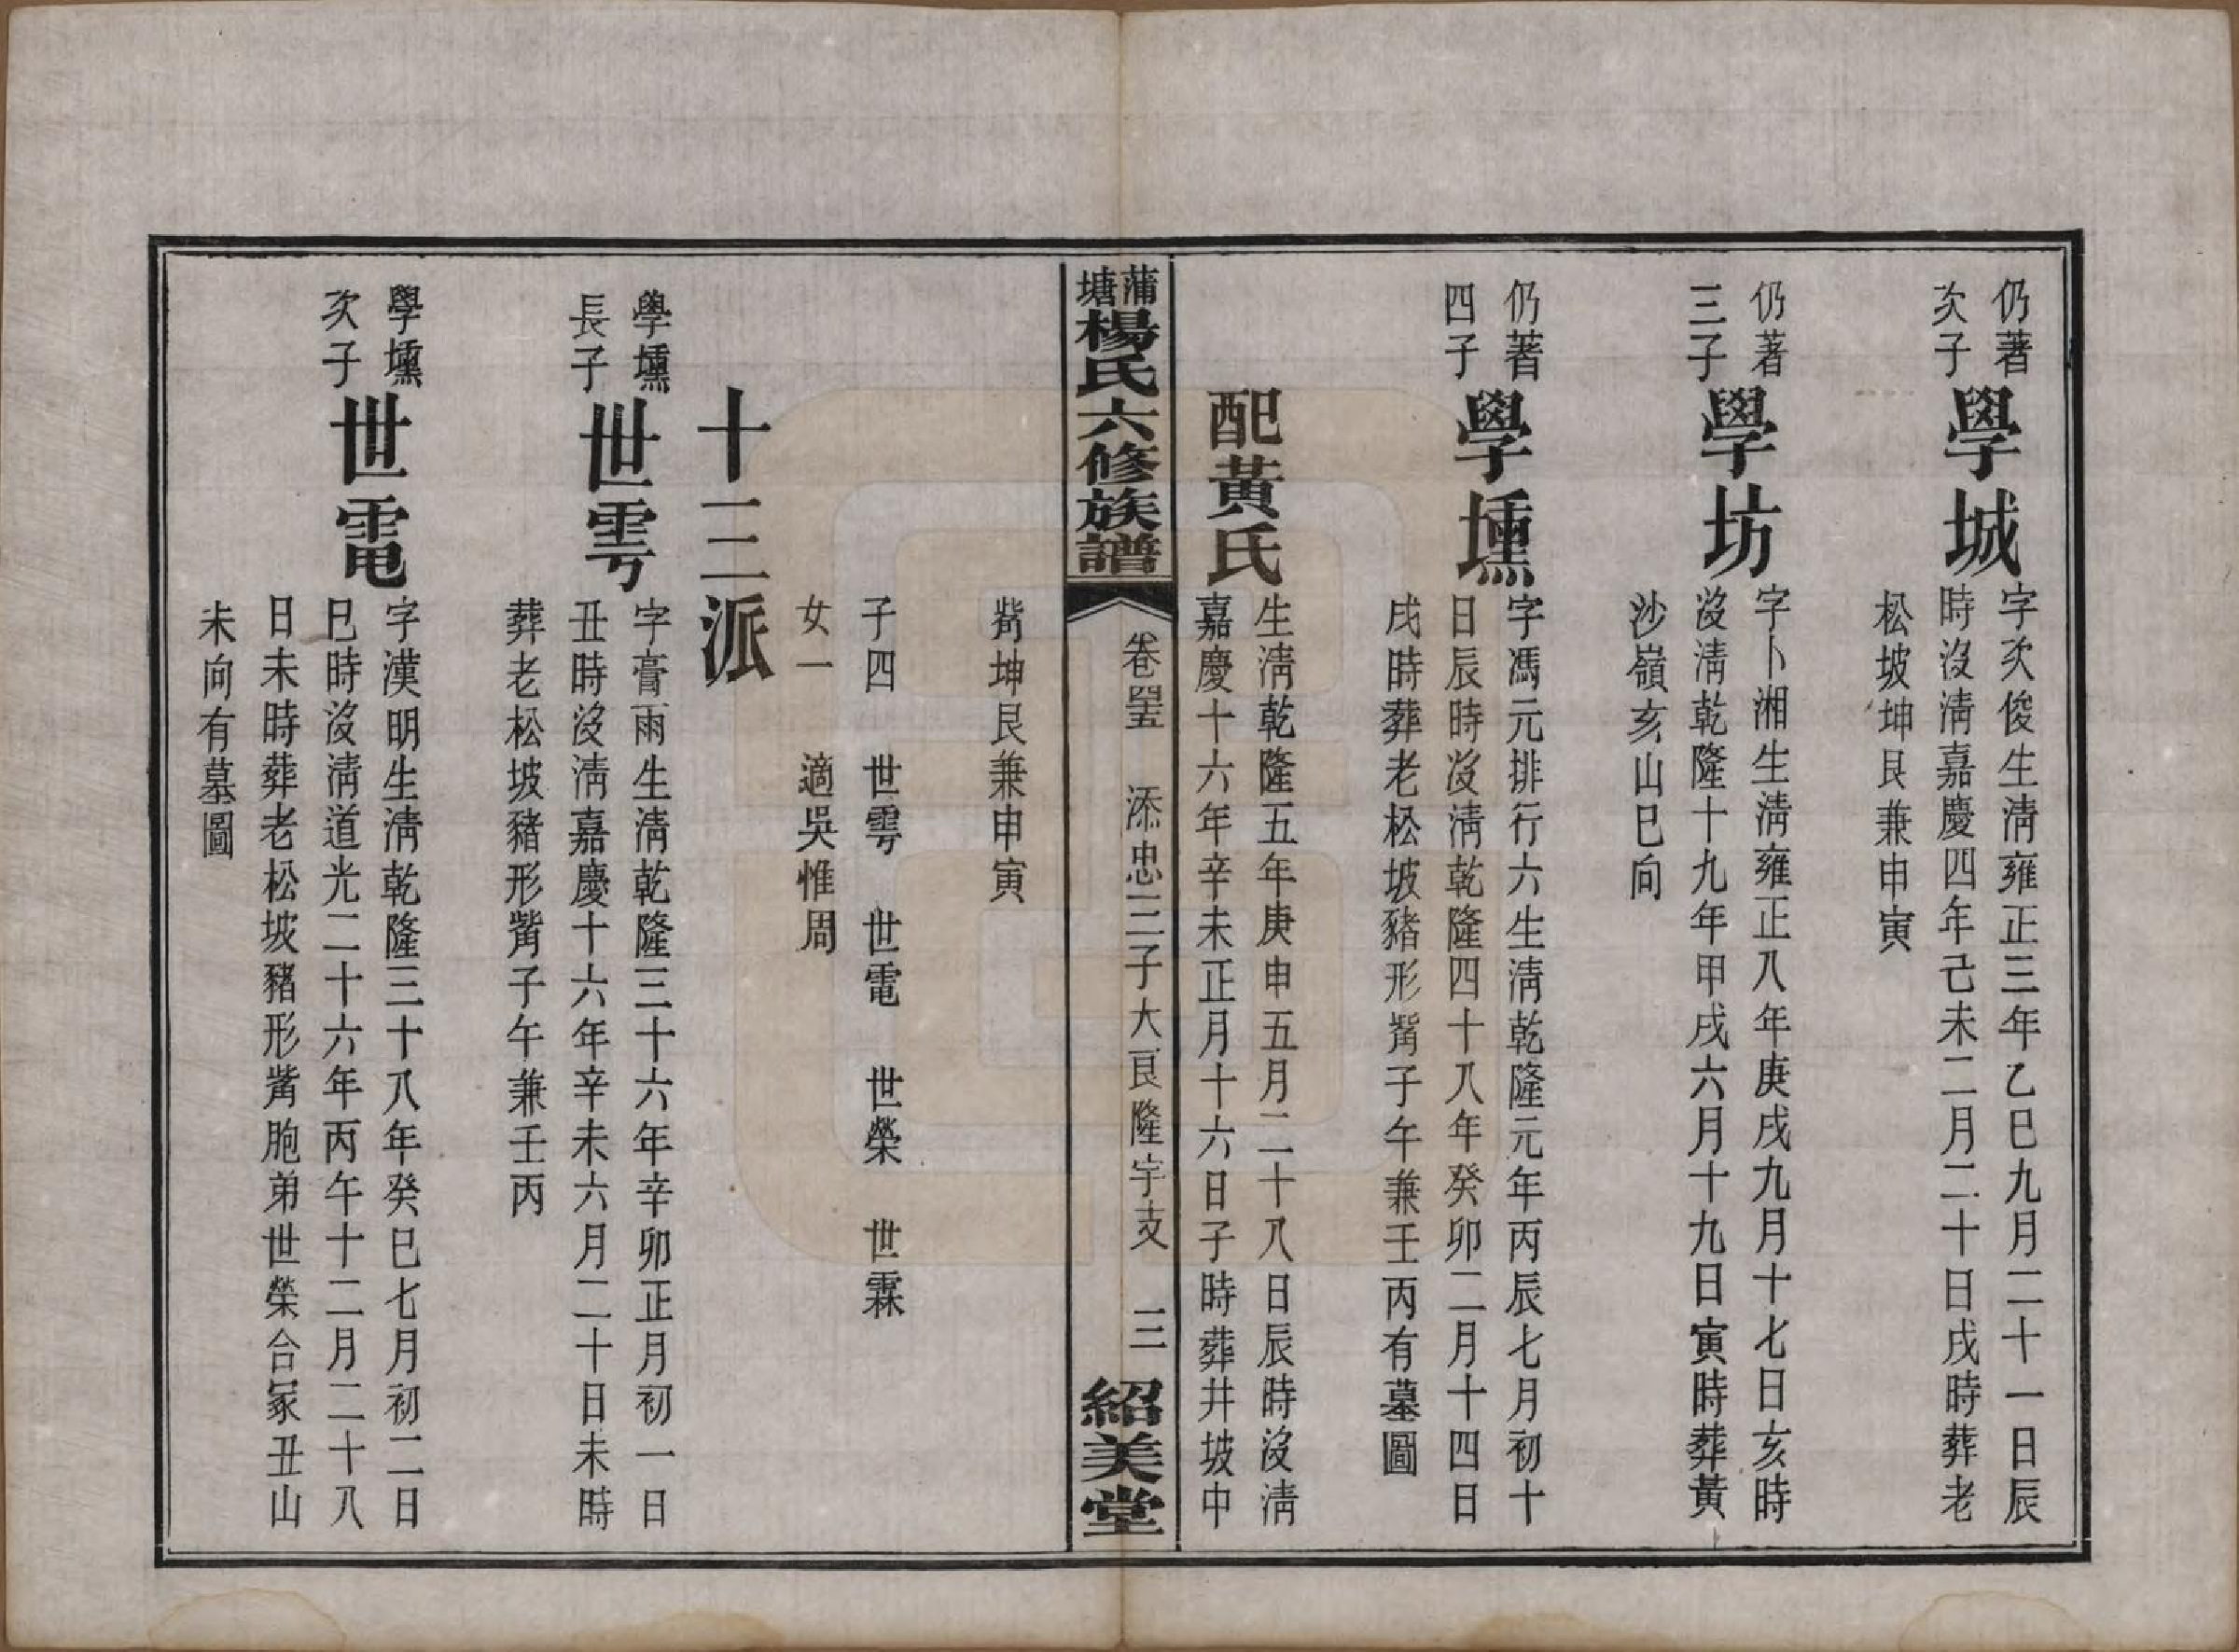 仍著
次子
學城
字次俊生淸雍正三年乙巳九月二十一日辰
時沒淸嘉慶四年己未二月二十日戌時葬老
松坡坤艮兼申寅
仍著
三子
學坊
字卜湘生淸雍正八年庚戌九月十七日亥時
沒淸乾隆十九年甲戌六月十九日寅時葬黃
沙嶺亥山巳向
仍著
四子
學壎
字馮元排行六生淸乾隆元年丙辰七月初十
日辰時沒淸乾隆四十八年癸卯二月十四日
戌時葬老松坡豬形觜子午兼壬丙有墓圖
配黃氏
生淸乾隆五年庚申五月二十八日辰時沒淸
嘉慶十六年辛未正月十六日子時葬井坡中
蒲塘楊氏六修族譜
卷四十五 添忠三子大良隆宇支 三
紹美堂
觜坤艮兼申寅
子四 世雩 世電 世榮 世霖
女一 適吳惟周
十三派
學壎
長子
世雩
字膏雨生淸乾隆三十六年辛卯正月初一日
丑時沒淸嘉慶十六年辛未六月二十日未時
葬老松坡豬形觜子午兼壬丙
學壎
次子
世電
字漢明生淸乾隆三十八年癸巳七月初二日
巳時沒淸道光二十六年丙午十二月二十八
日未時葬老松坡豬形觜胞弟世榮合冢丑山
未向有墓圖